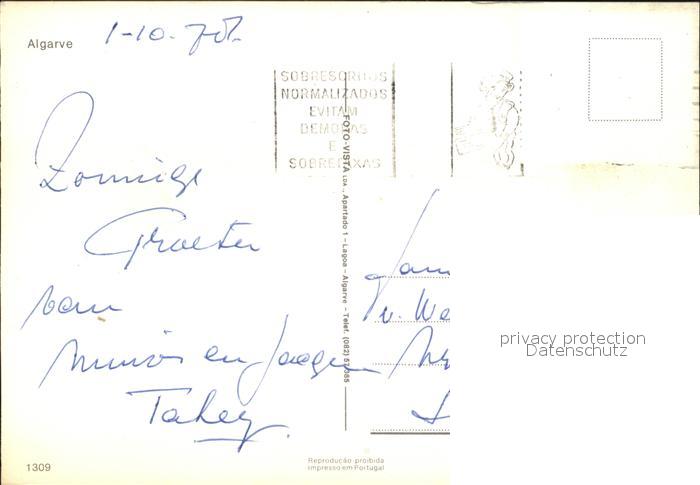 Algarve
1-10-78.
SOBRESCRITOS
NORMALIZADOS
EVITAM
DEMORAS
E
SOBRETAXAS
Zonnige
Groeten
van
en
FOTO-VISTA LDA., Apartado 1 - Lagoa - Algarve - Telef. (082)
v. We
privacy protection
Datenschutz
1309
Reprodução proibida
impresso em Portugal